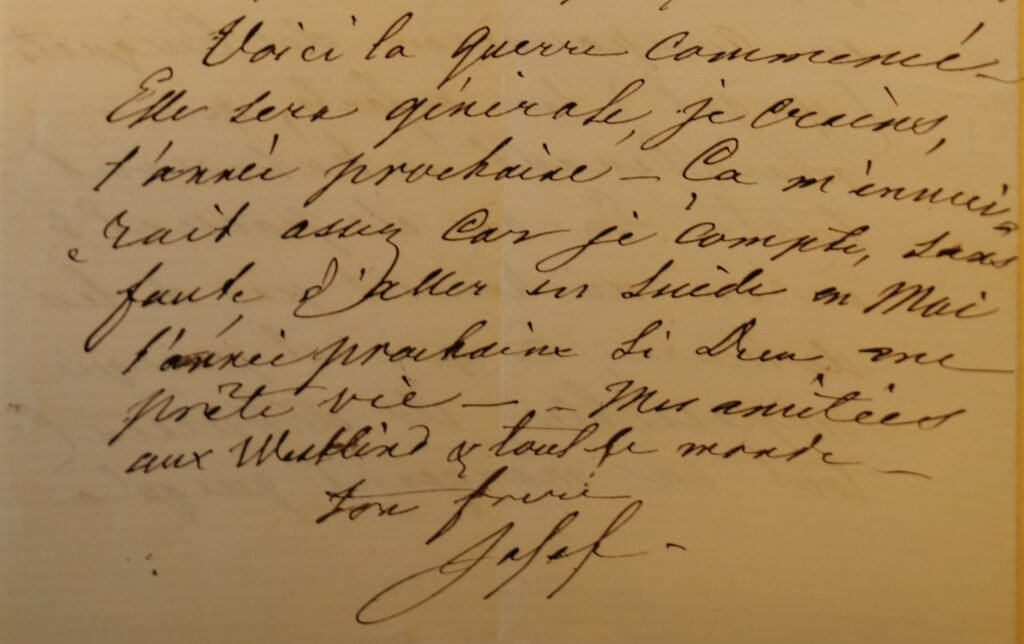 Voici la guerre commencé –
Elle sera générale, je crains,
l'année prochaine – Ça m'ennuie-
rait assez car je compte, sans
faute, d'aller en Suède en Mai
l'année prochaine si Dieu me
prête vie – – Mes amitiées
aux Westlind & tout le monde –
ton frère
Josef –